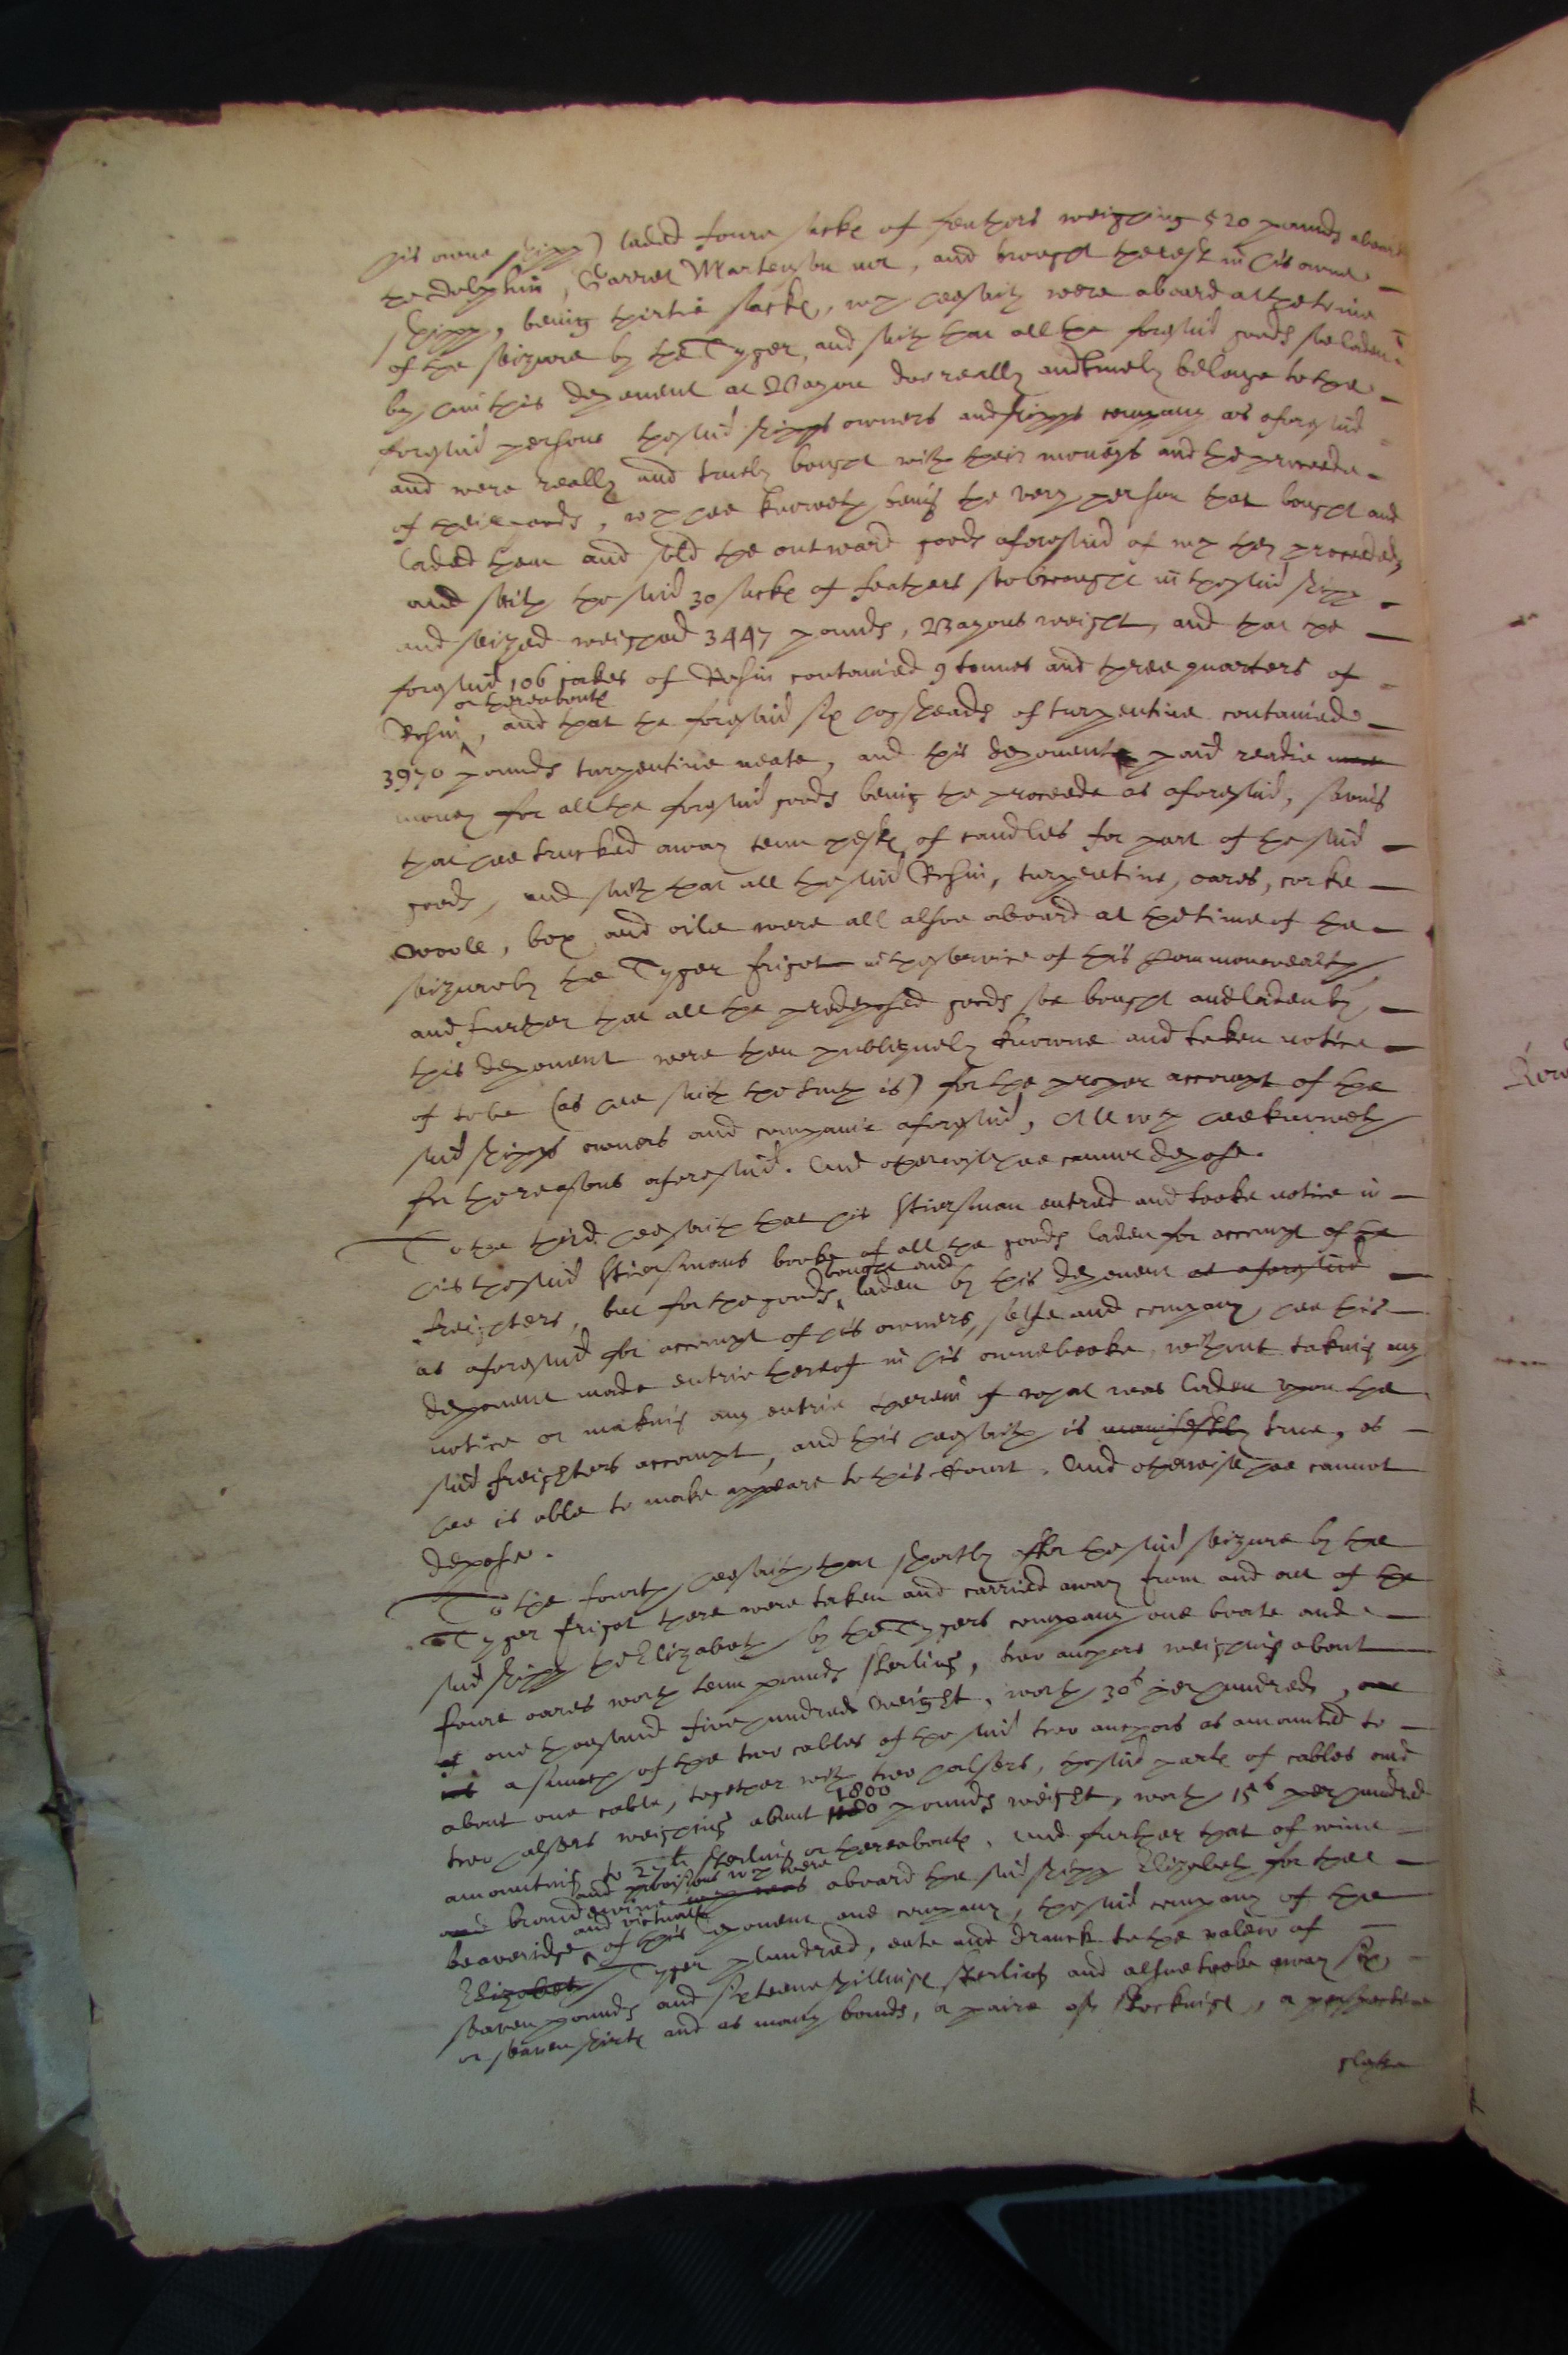 his owne shipp) laded foure sacks of feathers weighing 520 pounds aboard
the Dolphin, Garret Martenson mr, and brought the rest in his owne
shipp, being thirtie sacks, wch hee saith were aboard at the time
of the seizure by the Tyger, and saith that all the foresaid goods soe laden
by him this deponent at Bayon doe really and truely belonge to the
foresaid persons the said shipps owners and shipps company as aforesaid
and were really and truely bought with their moneys and the proceede
of their goods, wch hee knoweth being the very person that bought and
laded them and sold the outward goods aforesaid of wch they proceeded,
and saith the said 30 sacks of feathers soe brought in the said shipp
and seized weighed 3447 pounds, Bayons weight, and that the
foresaid 106 cakes of Rosin contained 9 tonnes and three quarters of
or thereabouts
Rosin, and that the foresaid six hogsheads of turpentine contained
3970 pounds turpentine neate, and this deponent paid readie
money for all the foresaid goods being the proceede as aforesaid, saving
that hee trucked away tenn chests of candles for part of the said
goods, and saith that all the said Rosin, turpentine, oares, corke
wooll, box and oile were all alsoe aboard at the time of the
seizure by the Tyger frigot in the service of this Commonwealth,
and further that all the predeposed goods soe bought and laden by
this deponent were then publiquely knowne and taken notice
of to be (as hee saith the truth is) for the proper accompt of the
said shipps owners and companie aforesaid, All wch hee knoweth
for the reasons aforesaid. And otherwise hee cannot depose.
To the third hee saith that his stiersman entred and tooke notice in
his the said stiersmans booke of all the goods laden for accompt of the
bought and
freighters, but for the goods laden by this deponent as aforesaid
as aforesaid for accompt of his owners, selfe and company, hee this
deponent made entrie thereof in his owne booke, without taking any
notice or making any entrie therein of what was laden upon the
said freighters accompt, and this hee saith is manifestly true, as
hee is able to make appeare to this Court. And otherwise hee cannot
depose.
To the fourth hee saith that shortly after the said seizure by the
Tyger frigot there were taken and carried away from and out of the
said shipp the Elizabeth by the Tygers company one boate and
foure oares worth tenn pounds sterling, two anchors weighing about
one thousand five hundred weight, worth 30s per hundred,
as much of the two cables of the said two anchors as amounted to
about one cable, together with two halsers, the said parts of cables and
1800
two halsers weighing about pounds weight, worth 15s per hundred
amounting to 27 li sterling or thereabouts. And further that of wine
and provisions wch were
and brandewine wch was aboard the said shipp Elizabeth for the
and victualls
beaveridge of this deponent and company, the said company of the
Elizabeth Tyger plundred, eate and dranck to the valew of
seaven pounds and sixteene shillings sterling and alsoe tooke away six
or seaven shirts and as many bands, a paire of stockings, a perspective
glasse